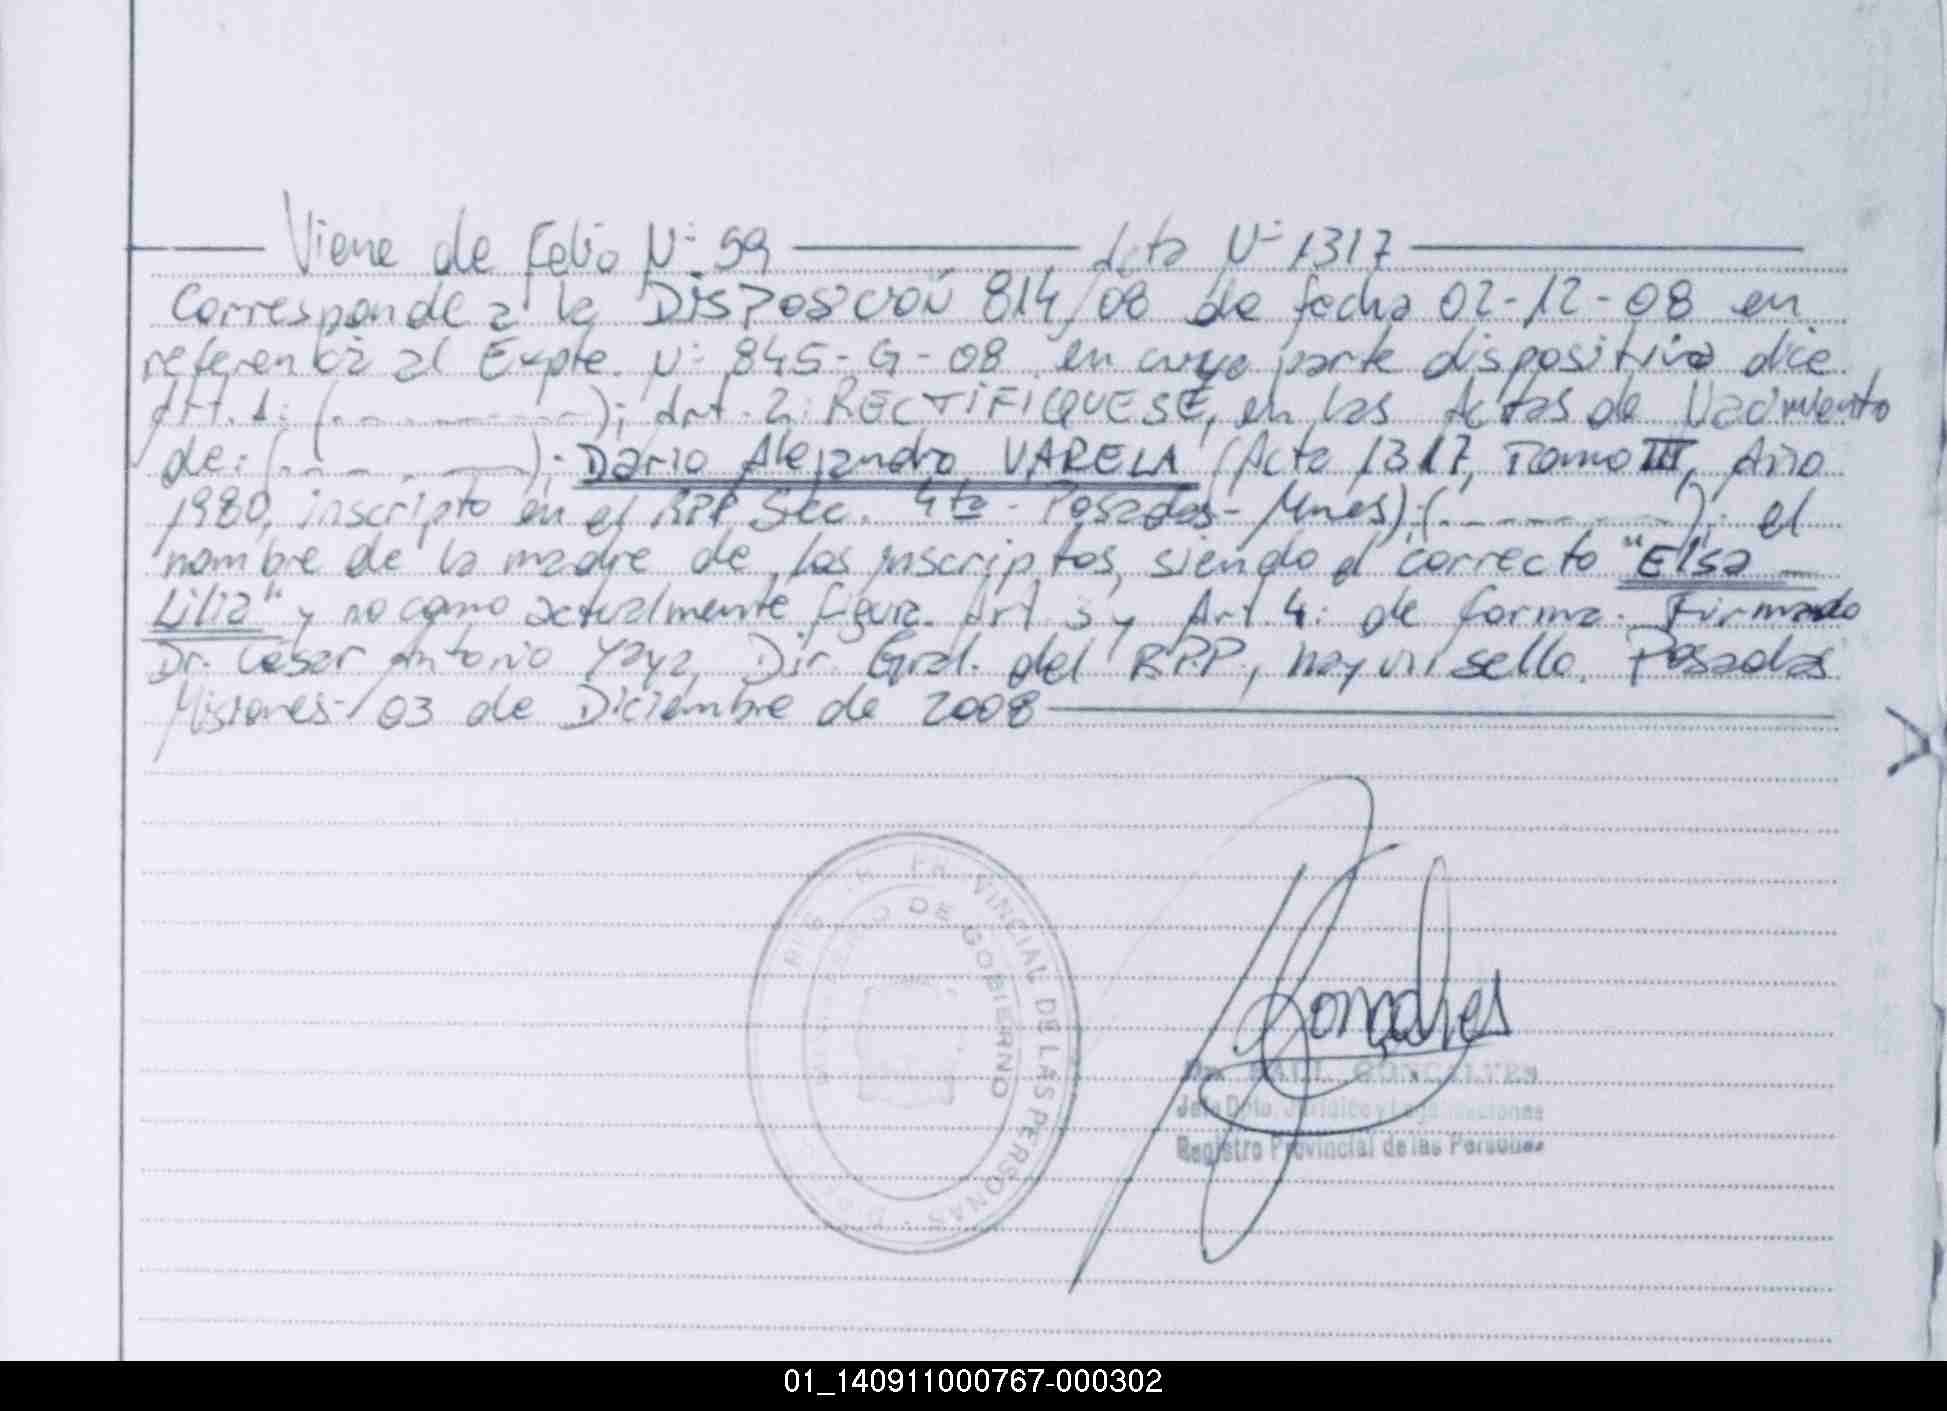 Viene de Folio Nº 59 Acta Nº 1317
Corresponde a la DISPOSICIÓN 814/08 de fecha 02-12-08 en
referencia al Expte. Nº 845-G-08 en cuya parte dispositiva dice
Art. 1: (- - - - -); Art. 2: RECTIFIQUESE, en las Actas de Nacimiento
de: (- - - - -); Dario Alejandro VARELA (Acta 1317, Tomo III, Año
1980, inscripto en el RPP Sec. 4ta - Posadas - Mnes); (- - - - -); el
nombre de la madre de los inscriptos, siendo el correcto "Elsa
Lilia" y no como actualmente figura. Art 3 y Art. 4: de forma. Firmado
Dr. Cesar Antonio Yaya, Dir. Gral. del RPP., hay un sello. Posadas
Misiones - 03 de Diciembre de 2008
PROVINCIAL DE LAS PERSONAS
DE GOBIERNO
Goncalves
Dr. RAUL GONCALVES
Jefe Dpto. Jurídico y
Registro Provincial de las Personas
01_140911000767-000302